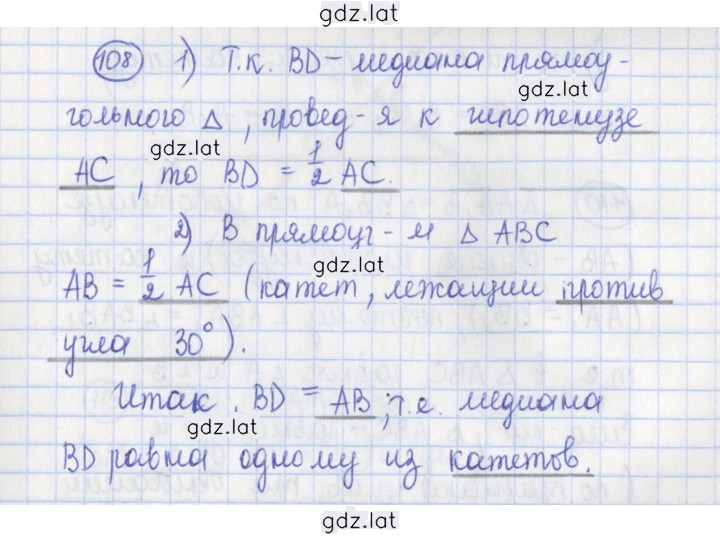 gdz.lat
108 1) Т.к. BD – медиана прямоу-
gdz.lat
гольного Δ, провед-я к гипотенузе
gdz.lat
AC, то BD = 1/2 AC.
2) В прямоуг-м Δ ABC
gdz.lat
AB = 1/2 AC (катет, лежащии против
угла 30°).
gdz.lat
Итак, BD = AB, т.е. медиана
gdz.lat
BD равна одному из катетов.
gdz.lat
gdz.lat